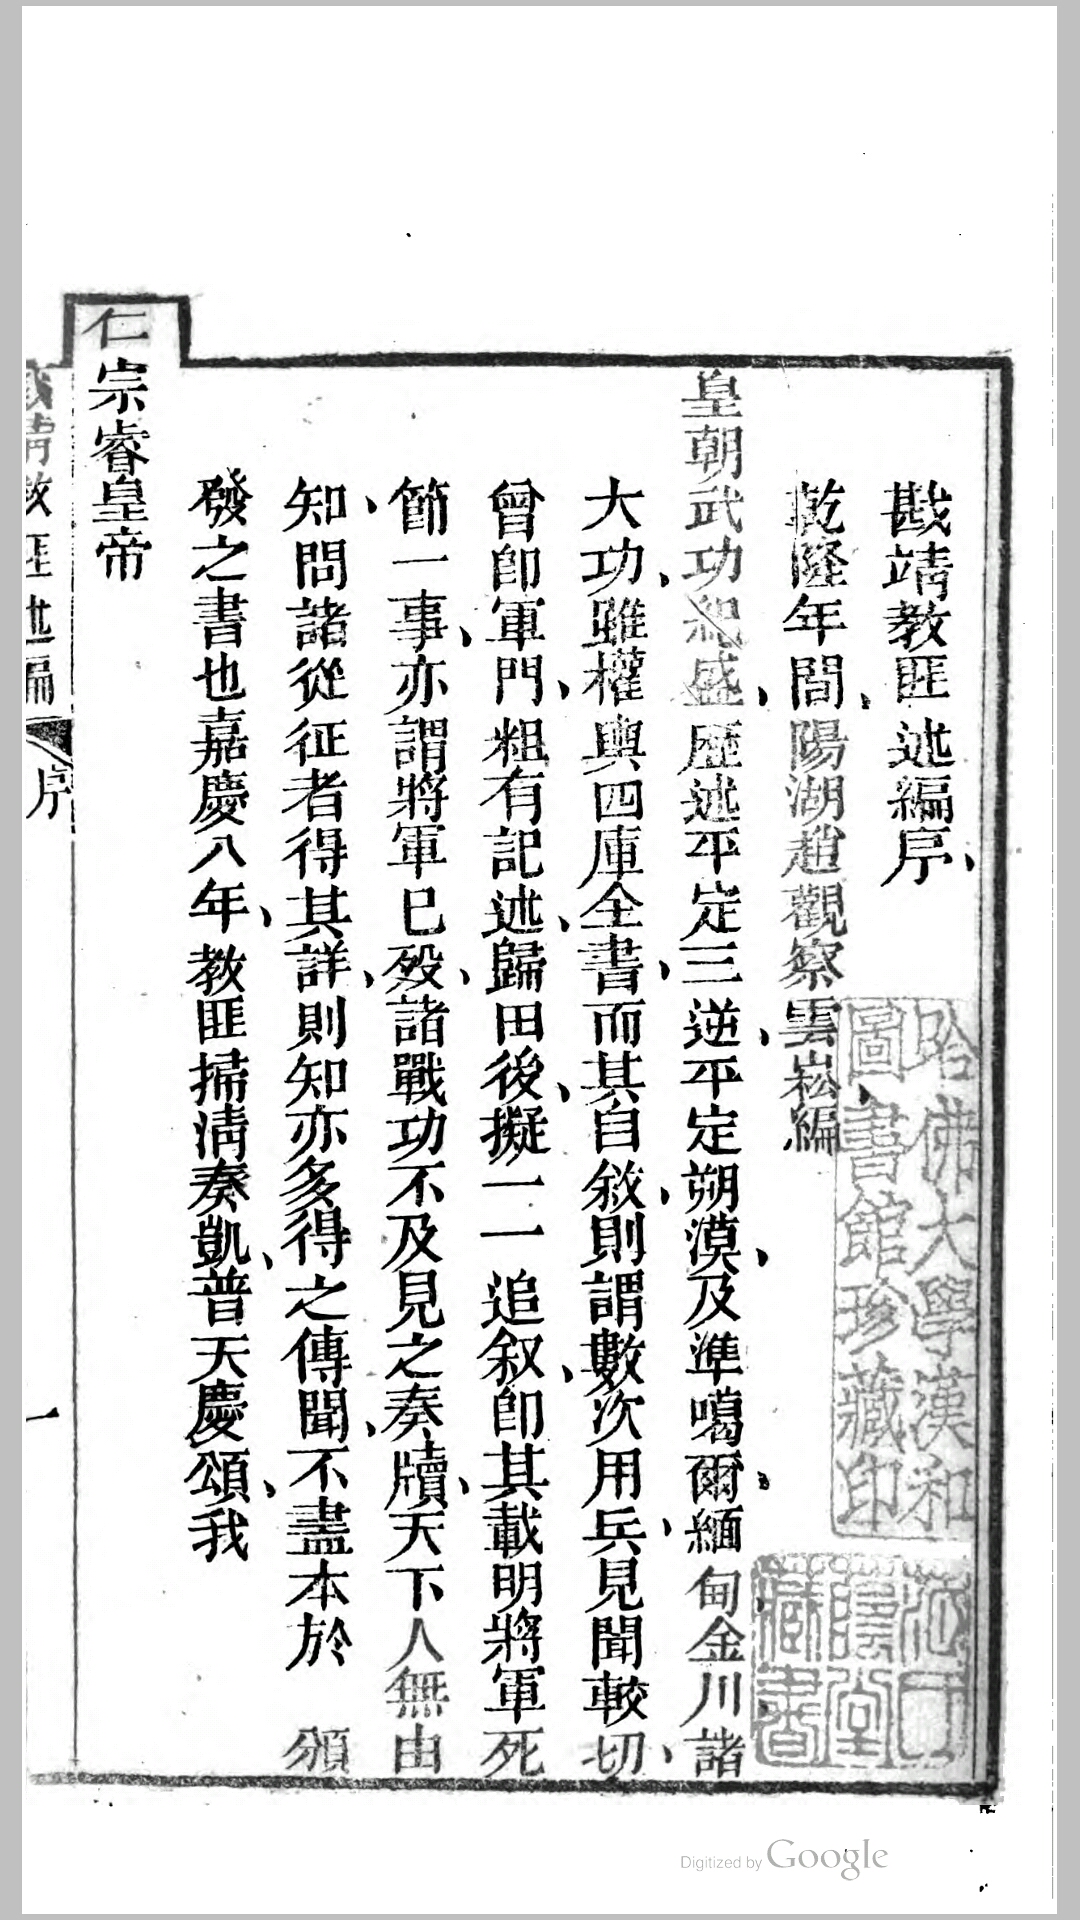 戡靖教匪述編序、
乾隆年間、陽湖趙觀察雲崧、編
皇朝武功紀盛、歷述平定三逆、平定朔漠、及準噶爾、緬甸、金川、諸
大功、雖權輿四庫全書、而其自敘、則謂數次用兵、見聞較切、
曾卽軍門、粗有記述、歸田後、擬一一追叙、卽其載明將軍死
節一事、亦謂將軍已歿、諸戰功不及見之奏牘、天下人無由
知、問諸從征者得其詳、則知亦多得之傳聞、不盡本於 頒
發之書也嘉慶八年、教匪掃淸奏凱、普天慶頌、我
仁宗睿皇帝
戡靖教匪述編
序
一
哈佛大學漢和
圖書館珍藏印
隱堂
藏書
Digitized by Google